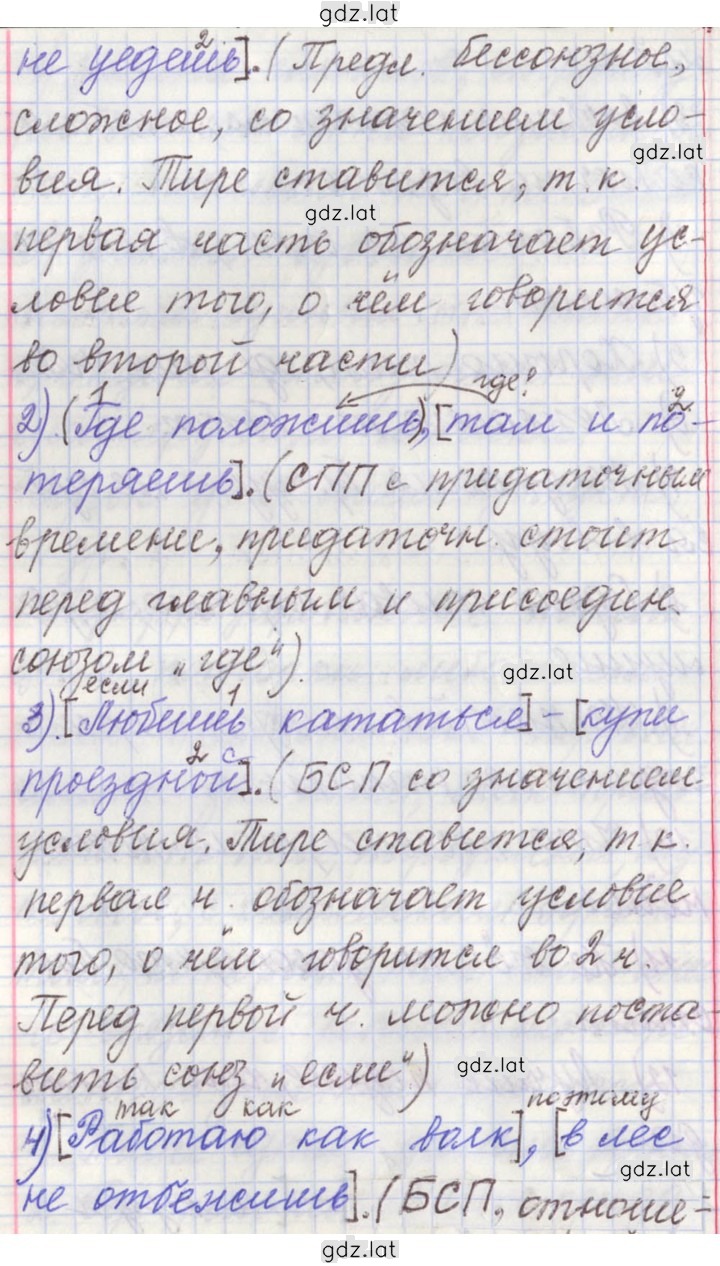 gdz.lat
не уедешь]. (Предл. бессоюзное,
2
сложное, со значением усло-
gdz.lat
вия. Тире ставится, т.к.
gdz.lat
первая часть обозначает ус-
ловие того, о чём говорится
во второй части)
1 где?
2
2) (Где положишь), [там и по-
теряешь]. (СПП с придаточным
времени, придаточн. стоит
перед главным и присоедин.
союзом „где")
gdz.lat
если
1
3) [Любишь кататься] - [купи
2 с
проездной]. (БСП со значением
условия. Тире ставится, т к.
первая ч. обозначает условие
того, о чём говорится во 2 ч.
Перед первой ч. можно поста-
вить союз „если")
gdz.lat
так как поэтому
4) [Работаю как волк], [в лес
gdz.lat
не отбежишь]. (БСП, отноше=
gdz.lat